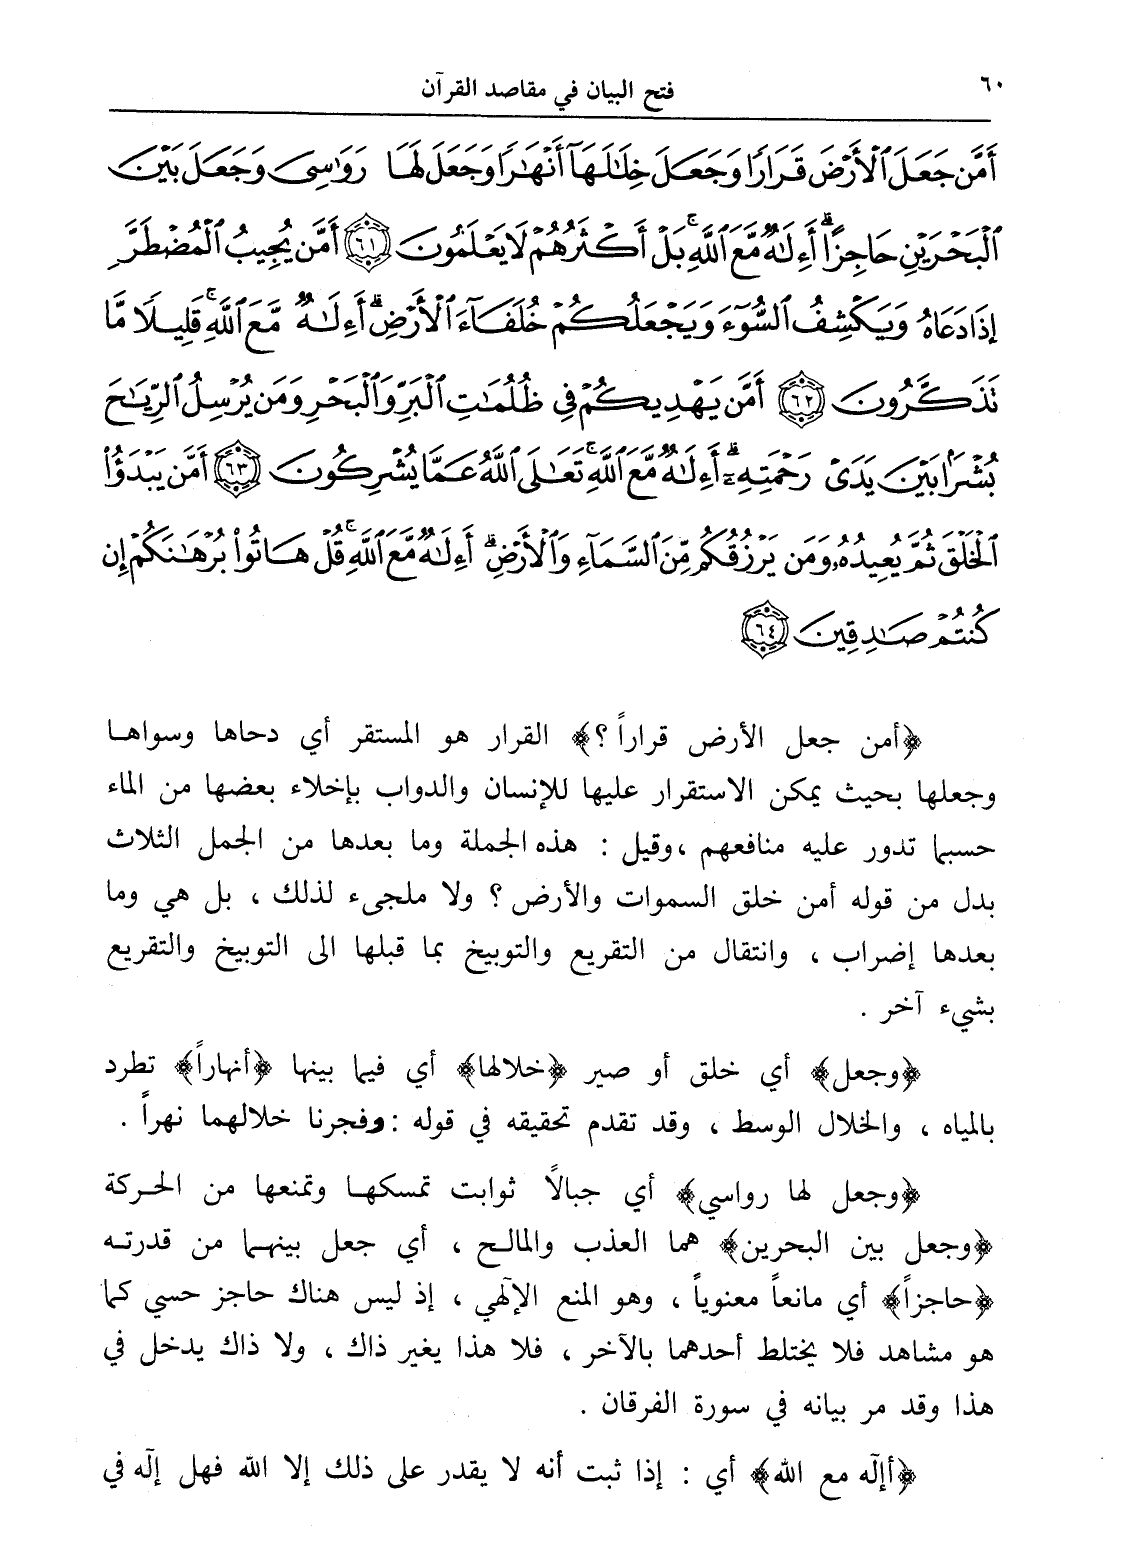 ٦٠
فتح البيان في مقاصد القرآن
أَمَّن جَعَلَ ٱلْأَرْضَ قَرَارًا وَجَعَلَ خِلَٰلَهَآ أَنْهَٰرًا وَجَعَلَ لَهَا رَوَٰسِىَ وَجَعَلَ بَيْنَ
ٱلْبَحْرَيْنِ حَاجِزًا ۗ أَءِلَٰهٌ مَّعَ ٱللَّهِ ۚ بَلْ أَكْثَرُهُمْ لَا يَعْلَمُونَ ٦١ أَمَّن يُجِيبُ ٱلْمُضْطَرَّ
إِذَا دَعَاهُ وَيَكْشِفُ ٱلسُّوٓءَ وَيَجْعَلُكُمْ خُلَفَآءَ ٱلْأَرْضِ ۗ أَءِلَٰهٌ مَّعَ ٱللَّهِ ۚ قَلِيلًا مَّا
تَذَكَّرُونَ ٦٢ أَمَّن يَهْدِيكُمْ فِى ظُلُمَٰتِ ٱلْبَرِّ وَٱلْبَحْرِ وَمَن يُرْسِلُ ٱلرِّيَٰحَ
بُشْرًۢا بَيْنَ يَدَىْ رَحْمَتِهِۦٓ ۗ أَءِلَٰهٌ مَّعَ ٱللَّهِ ۚ تَعَٰلَى ٱللَّهُ عَمَّا يُشْرِكُونَ ٦٣ أَمَّن يَبْدَؤُا۟
ٱلْخَلْقَ ثُمَّ يُعِيدُهُۥ وَمَن يَرْزُقُكُم مِّنَ ٱلسَّمَآءِ وَٱلْأَرْضِ ۗ أَءِلَٰهٌ مَّعَ ٱللَّهِ ۚ قُلْ هَاتُوا۟ بُرْهَٰنَكُمْ إِن
كُنتُمْ صَٰدِقِينَ ٦٤
﴿أمن جعل الأرض قراراً ؟﴾ القرار هو المستقر أي دحاها وسواها
وجعلها بحيث يمكن الاستقرار عليها للإنسان والدواب بإخلاء بعضها من الماء
حسبما تدور عليه منافعهم ،وقيل : هذه الجملة وما بعدها من الجمل الثلاث
بدل من قوله أمن خلق السموات والأرض ؟ ولا ملجىء لذلك ، بل هي وما
بعدها إضراب ، وانتقال من التقريع والتوبيخ بما قبلها الى التوبيخ والتقريع
بشيء آخر .
﴿وجعل﴾ أي خلق أو صير ﴿خلالها﴾ أي فيما بينها ﴿أنهاراً﴾ تطرد
بالمياه ، والخلال الوسط ، وقد تقدم تحقيقه في قوله : وفجرنا خلالهما نهراً .
﴿وجعل لها رواسي﴾ أي جبالاً ثوابت تمسكها وتمنعها من الحركة
﴿وجعل بين البحرين﴾ هما العذب والمالح ، أي جعل بينهما من قدرته
﴿حاجزاً﴾ أي مانعاً معنوياً ، وهو المنع الإلٓهي ، إذ ليس هناك حاجز حسي كما
هو مشاهد فلا يختلط أحدهما بالآخر ، فلا هذا يغير ذاك ، ولا ذاك يدخل في
هذا وقد مر بيانه في سورة الفرقان .
﴿أإلٓه مع الله﴾ أي : إذا ثبت أنه لا يقدر على ذلك إلا الله فهل إلٓه في